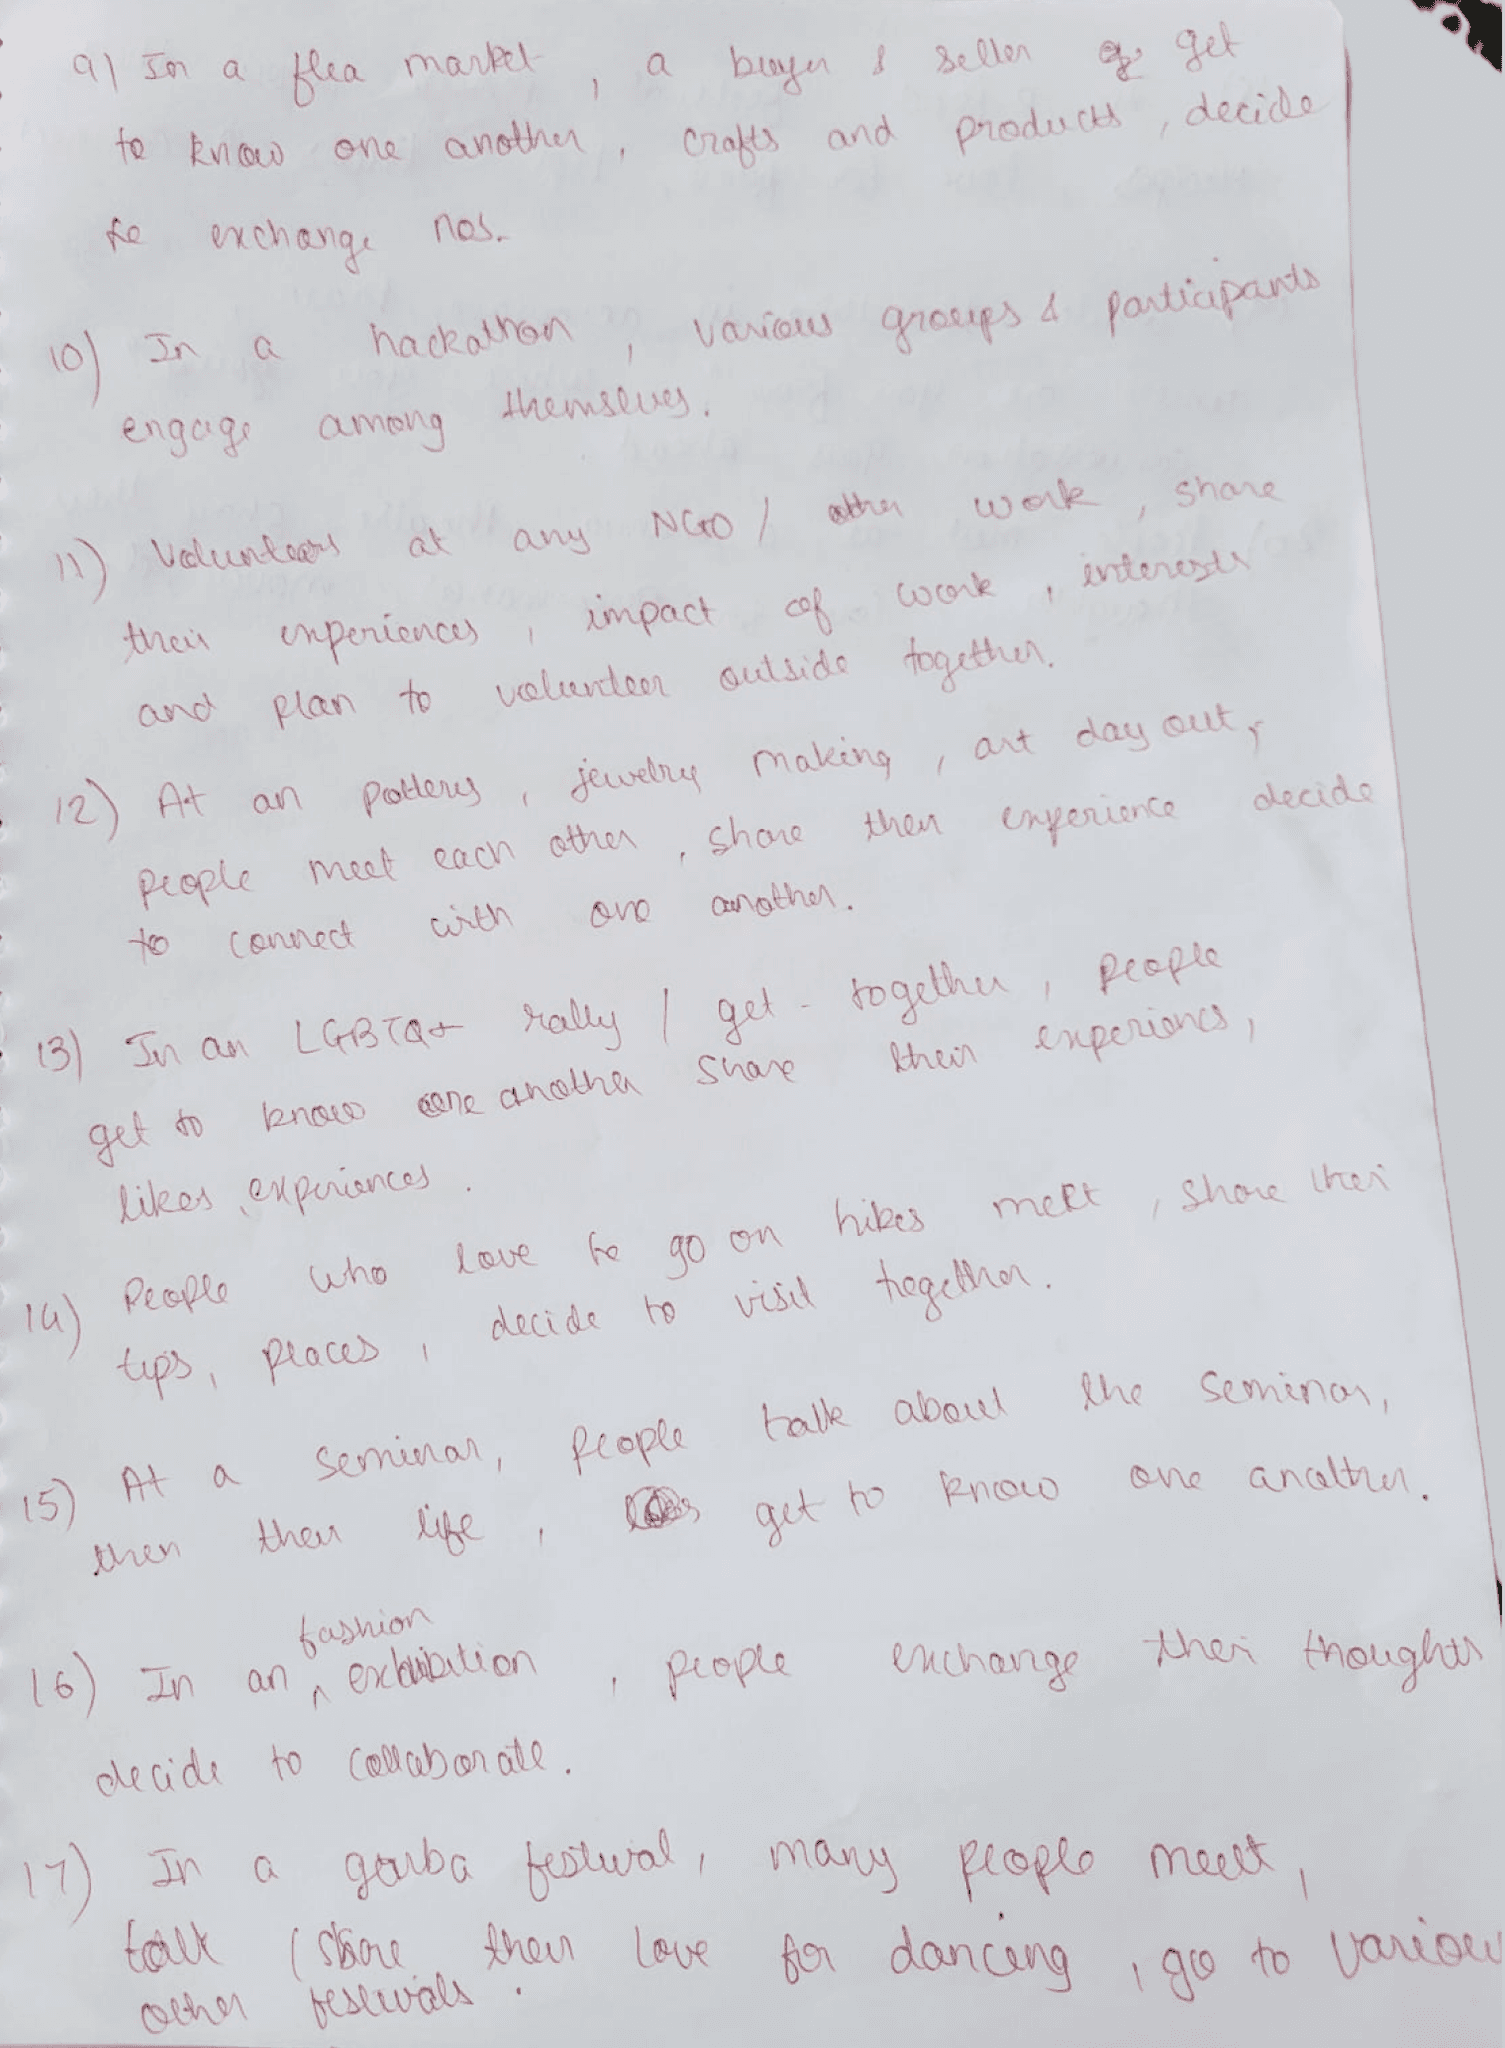 9) In a flea market , a buyer & seller get
to know one another , crafts and products , decide
to exchange nos.
10) In a hackathon , various groups & participants
engage among themselves.
11) Volunteers at any NGO / other work , share
their experiences , impact of work , interests
and plan to volunteer outside together.
12) At an pottery , jewelry making , art day out,
people meet each other , share their experience decide
to connect with one another.
13) In an LGBTQ+ rally / get - together , people
get to know one another share their experiences,
likes , experiences .
14) People who love to go on hikes meet , share their
tips , places , decide to visit together.
15) At a seminar, people talk about the seminar,
then their life , get to know one another.
16) In an fashion exhibition , people exchange their thoughts
decide to collaborate.
17) In a garba festival , many people meet ,
talk / share their love for dancing , go to various
other festivals .